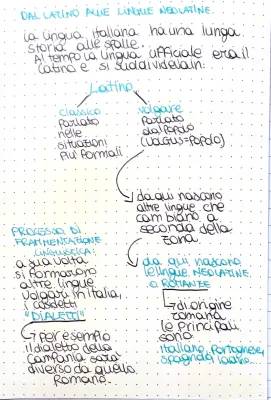 DAL LATINO ALLE LINGUE NEOLATINE.
La lingua italiana ha una lunga
storia alle spalle.
Al tempo la lingua ufficiale era il
latino e si suddivideva in:
Latino
classico
parlato
nelle
situazioni
più formali
volgare
parlato
dal popolo
(vulgus=popolo)
da qui nascono
altre lingue che
cambiano a
seconda della
zona.
da qui nascono
le lingue NEOLATINE
o ROMANZE
di origine
romana
le principali
sono
italiano, portoghese,
spagnolo,
PROCESSO DI
FRAMMENTAZIONE
LINGUISTICA:
a sua volta
si formarono
altre lingue
volgari in Italia,
i cosidetti
"DIALETTI"
per esempio
il dialetto della
Campania sarà
diverso da quello
Romano.